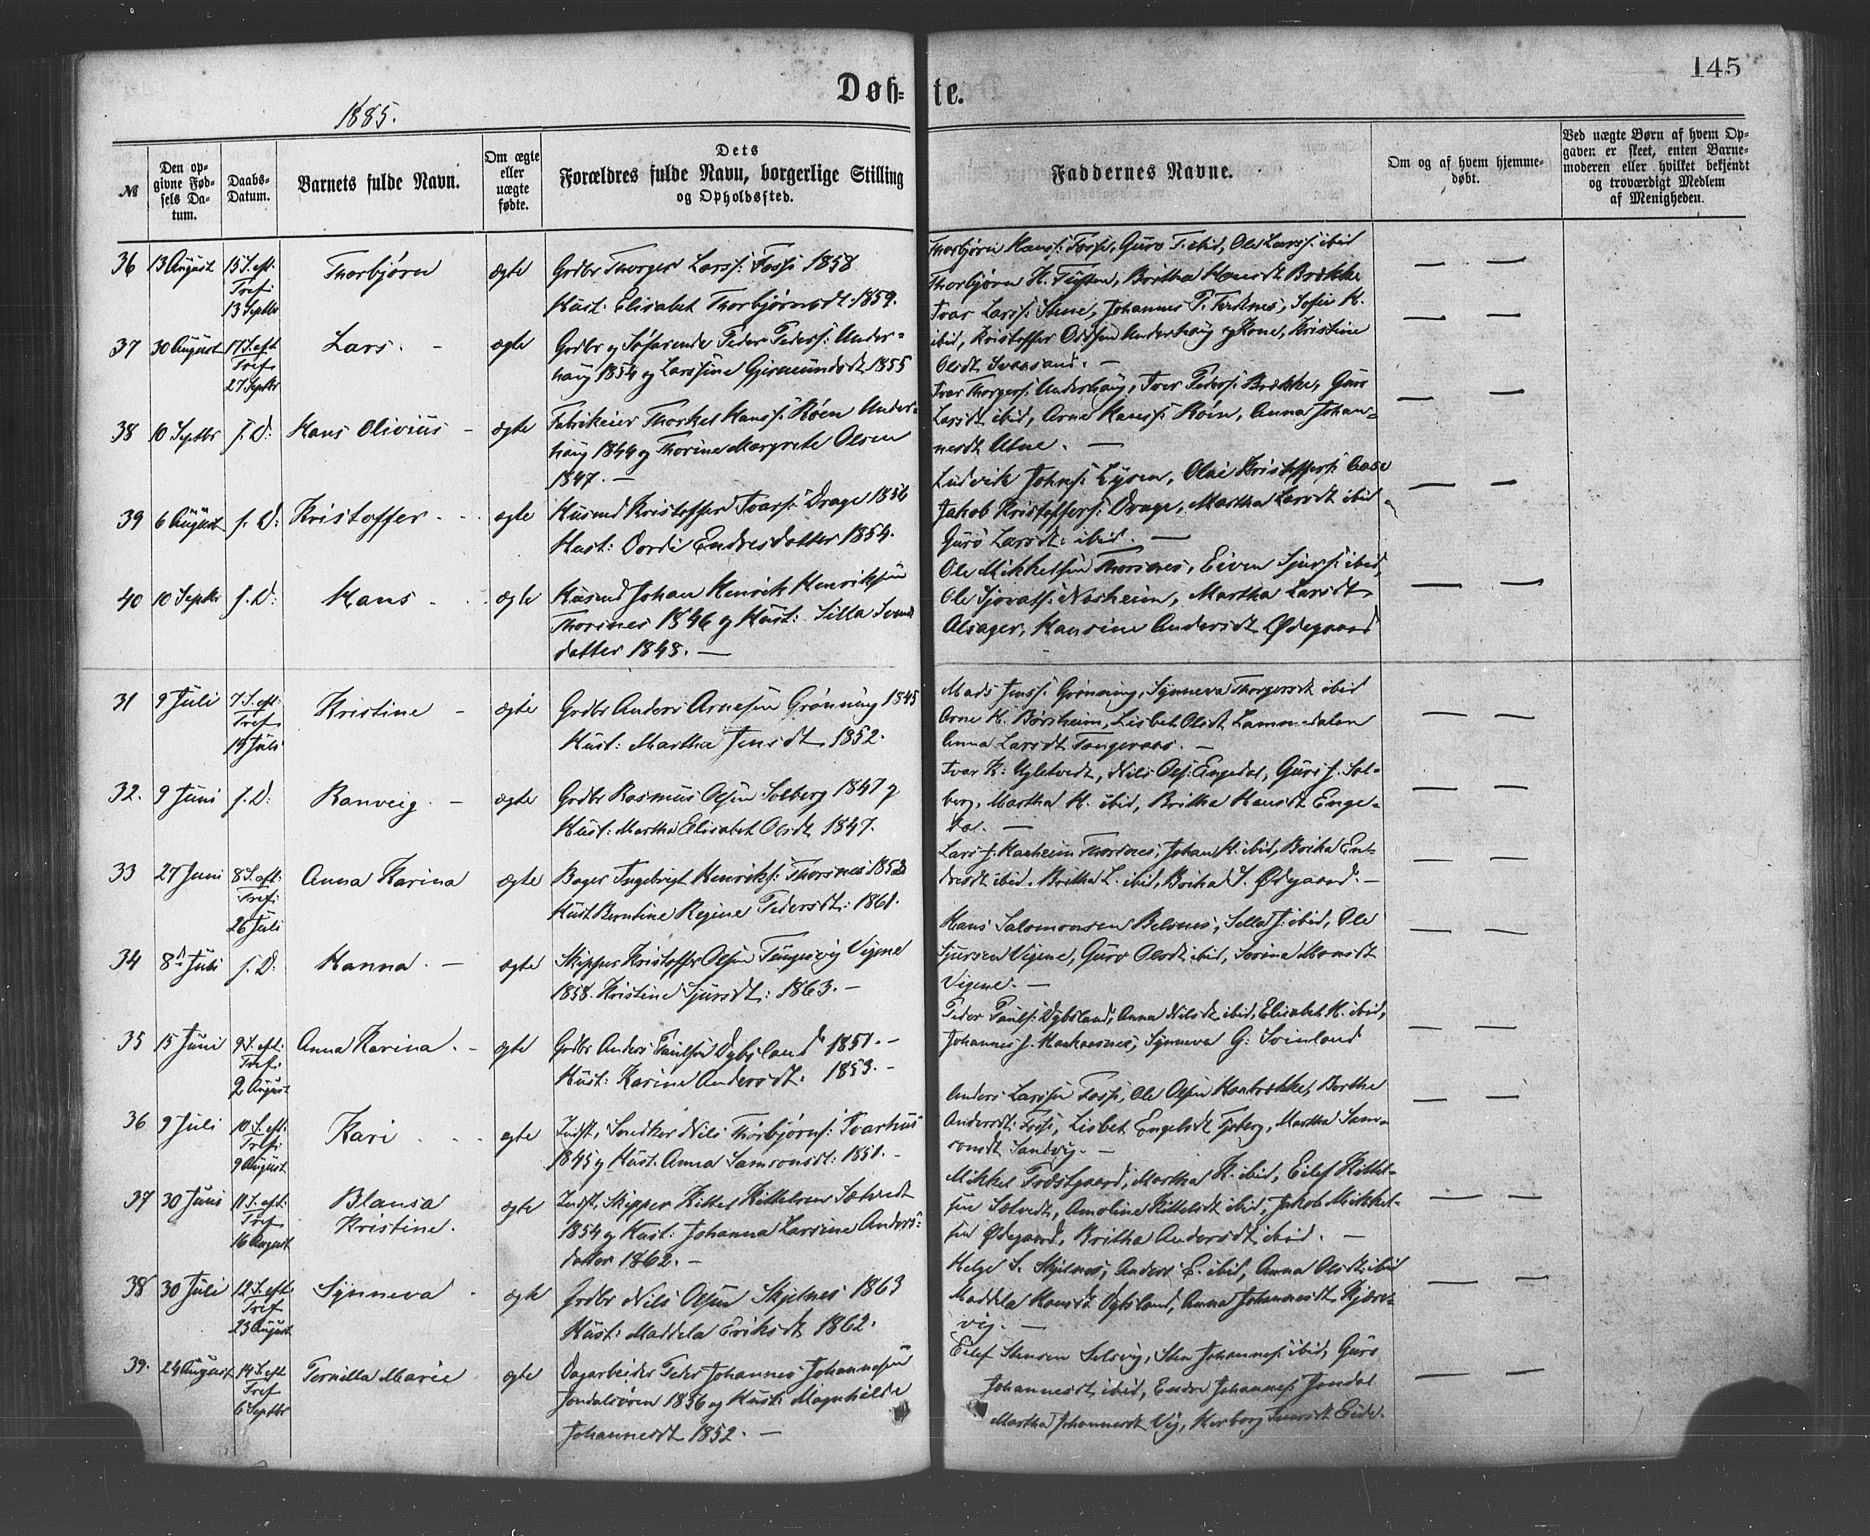 145
Døb-te.
1885.
№
Den op-
givne Fød-
sels Da-
tum.
Daabs-
Datum.
Barnets fulde Navn.
Om ægte
eller
uægte
fødte.
Dets
Forældres fulde Navn, borgerlige Stilling
og Opholdssted.
Faddernes Navne.
Om og af hvem hjemme-
døbt.
Ved uægte Børn af hvem Op-
gaven er skeet, enten Barne-
moderen eller hvilket bekjendt
og troværdigt Medlem
af Menigheden.
36 13 August 15 S. eft: Tref: 13 Septbr Thorbjørn ægte
Grdbr Thorger Larss: Foss 1858
Hust: Elisabet Thorbjørnsdt: 1859.
Thorbjørn Hanss: Foss, Guro T. ibid, Ole Larss: ibid
Thorbjørn H. Britha Hansdt Brække
37 30 August 17 S. eft Tref 27 Septbr Lars. - ægte
Grdbr og Søfarende Peder Peders: Under-
haug 1854 og Larssine Gjermundsdt 1855
Ivar Larss: Stene, Johannes P. Sofie K.
ibid, Kristoffer Oddsen Underhaug og Kone, Kristine
Olsdt Svaasand. -
38 10 Septbr f. D: Hans Olivius - ægte
Fabrikeier Thorkel Hanss: Røen Under-
haug 1844 og Thorine Margrete Olsen
1847. -
Ivar Thorgers: Underhaug, Iver Peders: Brække, Guro
Larsdt ibid, Arne Hanss: Røen, Anna Johan-
nesdt Utne. -
39 6 August f. D: Kristoffer - ægte
Husmd Kristoffer Ivars: Drage 1856
Hust: Dordi Endresdatter 1854.
Ludvik Johns: Lysen, Olai Kristoffers: Aase
Jakob Kristoffers: Drage, Martha Larsdt ibid
Guro Larsdt: ibid. -
40 10 Septbr f. D: Hans - ægte
Husmd Johan Henrik Henriksen
Thorsnes 1846 og Hust: Silla Svends
datter 1848. -
Ole Mikkelsen Thorsnes, Eiven Sjurs: ibid,
Ole Sjovats: Næsheim, Martha Larsdt
Alsager, Hansine Andersdt Ødegaard
31 9 Juli 7 S. eft: Tref 19 Juli Kristine - ægte
Grdbr Anders Arnesen Grønning 1845
Hust: Martha Jensdt 1852.
Mads Jenss: Grønning, Synneva Thorgersdt ibid
Arne H. Børsheim, Lisbet Olsdt Lammedalen
Anna Larsdt Tangeraas. -
32. 9 Juni f. D: Ranveig. - ægte
Grdbr Rasmus Olsen Solberg 1847 og
Hust: Martha Elisabet Olsdt 1847.
Ivar K: Ugletvedt, Nils Ols: Engedal, Guri J. Sol-
berg, Martha K. ibid, Britha Hansdt Enge-
dal. -
33 27 Juni 8 S. eft: Tref: 26 Juli Anna Karina ægte
Bager Ingebrigt Henriks: Thorsnes 1853
Hust Berntine Regine Pedersdt: 1861.
Lars J. Thorsnes, Johan H. ibid, Britha En-
dresdt ibid, Britha L. ibid, Britha S. Ødegaard. -
34 8de Juli f. D: Hanna. - ægte
Skipper Kristoffer Olsen Tungesvig Vigene
1858. Kristine Sjursdt: 1863. -
Hans Salomonsen Belsnes, Sella J. ibid, Ole
Sjursen Vigene, Guro Olsdt ibid, Serina Monsdt
Vigene. -
35 15 Juni 9 S. eft: Tref: 2 August Anna Karina. - ægte
Grdbr Anders Paulsen Dybsland 1851. -
Hust: Karine Andersdt: 1853. -
Peder Pauls: Dybsland, Anna Nilsdt ibid, Elisabet H. ibid,
Johannes J. Synneva G: Svinland
36 9 Juli 10 S. eft: Tref: 9 August Kari ægte
Indst, Snedker Nils Thorbjørns: Ivarhus
1845 og Hust: Anna Samsonsdt: 1851. -
Anders Larssen Foss, Ole Olsen Haabrekke, Berthe
Andersdt: Foss, Lisbet Engelsdt Fosberg, Martha Sam-
sonsdt Sandvig. -
37 30 Juni 11 S. eft: Tref 16 August Blansa Kristine. ægte
Indst, Skipper Kittel Kittelsen Sætvedt
1854 og Hust: Johanna Larsine Anders:
datter 1862. -
Mikkel Martha K. ibid, Eilef Kittel-
sen Sætvedt, Amoline Kittelsdt ibid, Jakob Mikkel-
sen Ødegaard, Britha Andersdt ibid. -
38 30 Juli 12 S. eft Tref 23 August Synneva ægte
Grdbr Nils Olsen Skjelnes 1863
Hust: Maddela Eriksdt 1862.
Helge S. Skjelnes, Anders E. ibid, Anna Olsdt: ibid
Maddela Hansdt Dybsland, Anna Johannesdt Kjære-
vig. -
39. 24 August 14 S. eft Tref 6 Septbr Pernilla Marie - ægte
Dagarbeider Peder Johannes Johannesen
Jondalsøren 1856 og Hust: Magnhilde
Johannesdt 1852. -
Eilef Stensen Selsvig, Sten Johannes: ibid, Guro
Johannesdt ibid, Endre Johannes: Jondal
Martha Johannesdt Vig, Herborg Eide.